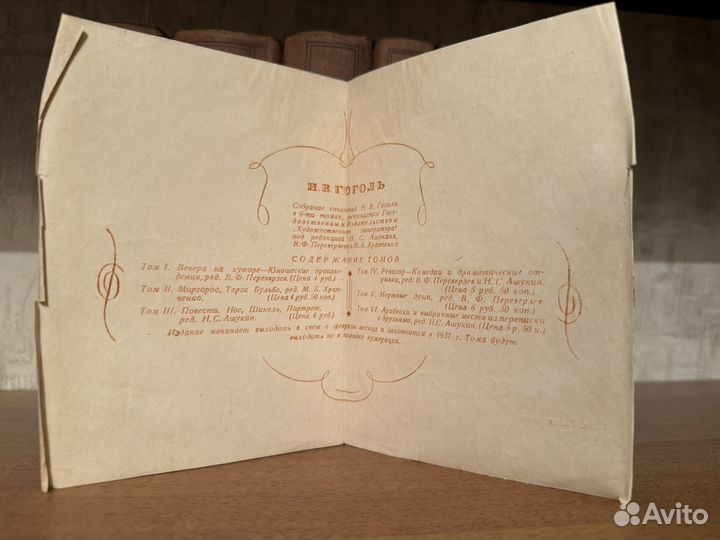 Н.В.ГОГОЛЬ
Собрание сочинений Н. В. Гоголя
в 6-ти томах, выпускается Госу-
дарственным Издательством
„Художественная литература"
под редакцией Н. С. Ашукина,
В. Ф. Переверзева и М. Б. Храпченко
СОДЕРЖАНИЕ ТОМОВ
Том I. Вечера на хуторе—Юношеские произве-
дения, ред. В. Ф. Переверзев. (Цена 4 руб.)
Том II. Миргород, Тарас Бульба, ред. М. Б. Храп-
ченко. (Цена 4 руб. 50 коп.)
Том III. Повести. Нос, Шинель, Портрет,
ред. Н. С. Ашукин. (Цена 4 руб.)
Том IV. Ревизор—Комедии и драматические от-
рывки, ред. В. Ф. Переверзев и Н. С. Ашукин.
(Цена 5 руб. 50 коп.)
Том V. Мертвые души, ред. В. Ф. Переверзев.
(Цена 6 руб. 50 коп.)
Том VI. Арабески и выбранные места из переписки
с друзьями, ред. Н. С. Ашукин. (Цена 5 р. 50 к.)
Издание начинает выходить в свет с февраля месяца и закончится в 1937 г. Тома будут
выходить не в порядке нумерации.
Avito